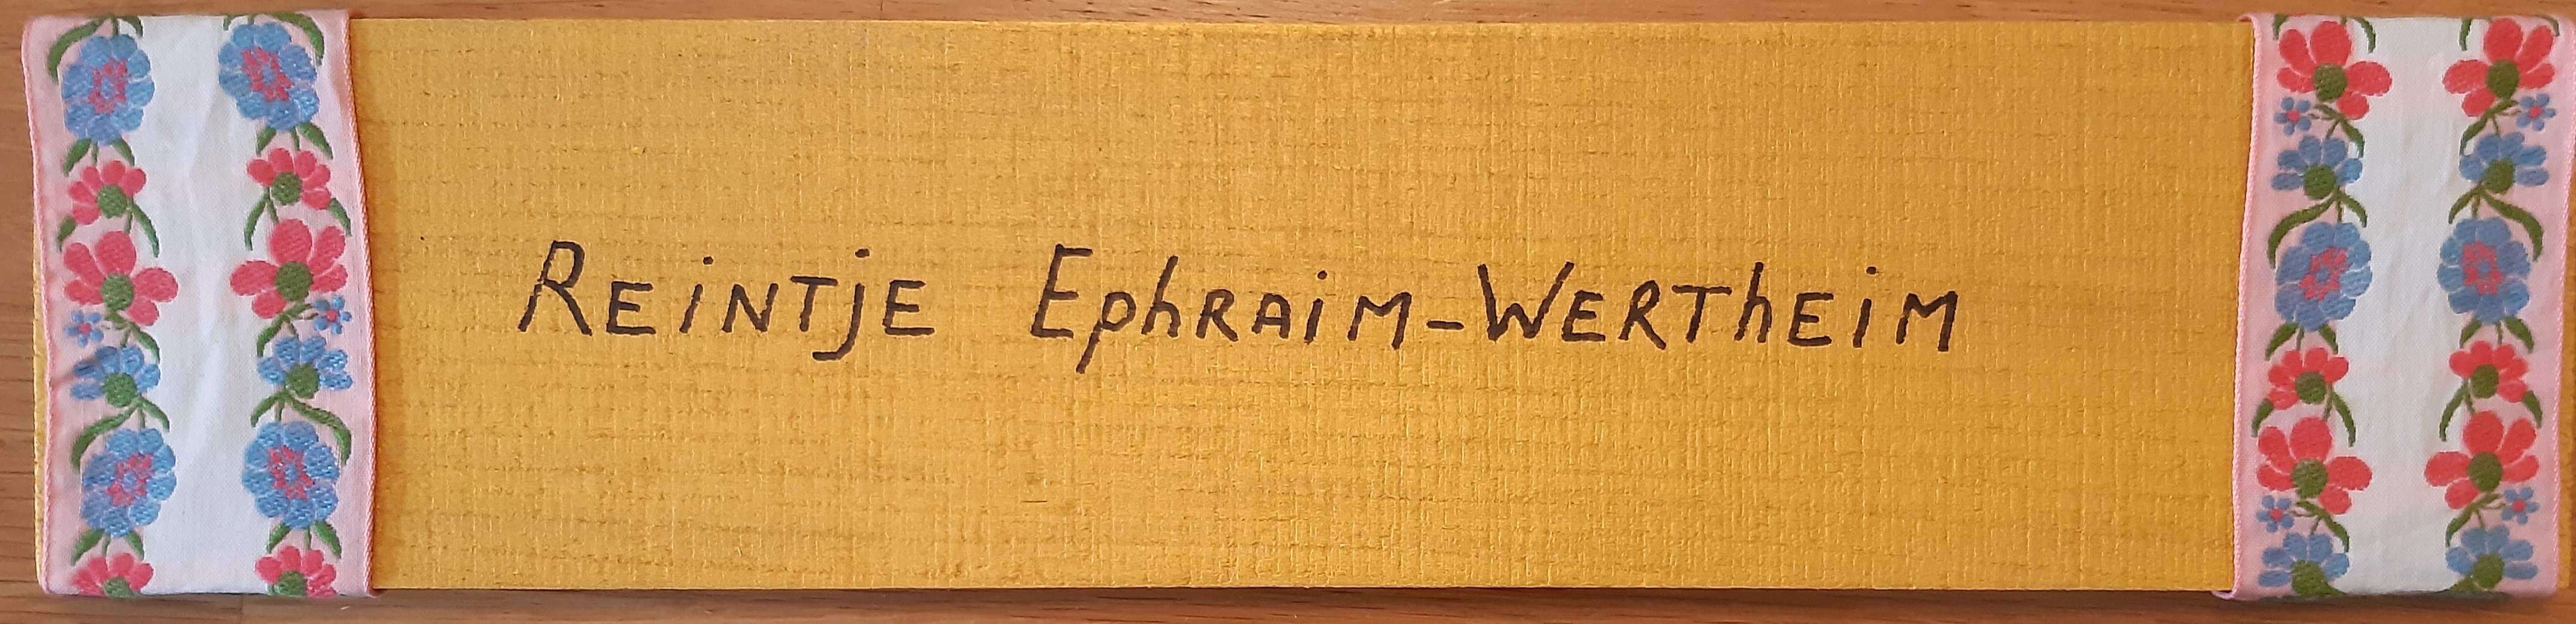 Reintje Ephraim-Wertheim